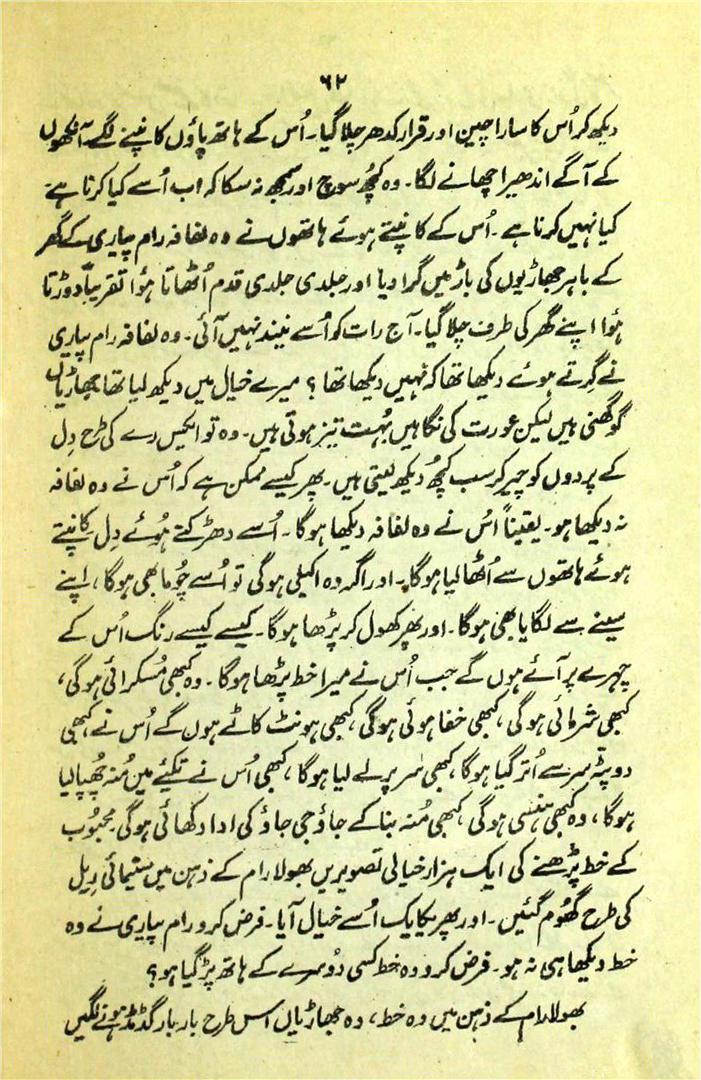 ۶۲
دیکھ کر اُس کا سارا چین اور قرار کدھر چلا گیا۔ اُس کے ہاتھ پاؤں کانپنے لگے۔ آنکھوں
کے آگے اندھیرا چھانے لگا۔ وہ کچھ سوچ اور سمجھ نہ سکا کہ اب اُسے کیا کرنا ہے
کیا نہیں کرنا ہے۔ اُس کے کانپتے ہوئے ہاتھوں نے وہ لفافہ رام پیاری کے گھر
کے باہر جھاڑیوں کی باڑ میں گرا دیا اور جلدی جلدی قدم اُٹھاتا ہؤا تقریباً دوڑتا
ہؤا اپنے گھر کی طرف چلا گیا۔ آج رات کو اُسے نیند نہیں آئی۔ وہ لفافہ رام پیاری
نے گرتے ہوئے دیکھا تھا کہ نہیں دیکھا تھا؟ میرے خیال میں دیکھ لیا تھا جھاڑیاں
گو گھنی ہیں لیکن عورت کی نگاہیں بہُت تیز ہوتی ہیں۔ وہ تو ایکس رے کی طرح دِل
کے پردوں کو چیر کر سب کچھُ دیکھ لیتی ہیں۔ پھر کیسے ممکن ہے کہ اُس نے وہ لفافہ
نہ دیکھا ہو۔ یقیناً اُس نے وہ لفافہ دیکھا ہوگا۔ اُسے دھڑکتے ہُوئے دِل کانپتے
ہوئے ہاتھوں سے اُٹھا لیا ہوگا۔ اور اگر وہ اکیلی ہوگی تو اُسے چُوما بھی ہوگا، اپنے
سینے سے لگایا بھی ہوگا۔ اور پھر کھول کر پڑھا ہوگا۔ کیسے کیسے رنگ اُس کے
چہرے پر آئے ہوں گے جب اُس نے میرا خط پڑھا ہوگا۔ وہ کبھی مُسکرائی ہوگی،
کبھی شرمائی ہوگی، کبھی خفا ہوئی ہوگی، کبھی ہونٹ کاٹے ہوں گے اُس نے، کبھی
دوپٹہ سر سے اُتر گیا ہوگا، کبھی سر پر لے لیا ہوگا، کبھی اُس نے تکئے میں مُنہ چھُپا لیا
ہوگا، وہ کبھی ہنسی ہوگی، کبھی مُنہ بنا کے جاؤ جی جاؤ کی ادا دکھائی ہوگی۔ محبوُب
کے خط پڑھنے کی ایک ہزار خیالی تصویریں بھولا رام کے ذہن میں سنیمائی رِیل
کی طرح گھُوم گئیں۔ اور پھر یکایک اُسے خیال آیا۔ فرض کرو رام پیاری نے وہ
خط دیکھا ہی نہ ہو۔ فرض کرو وہ خط کسی دوُسرے کے ہاتھ پڑ گیا ہو؟
بھولا رام کے ذہن میں وہ خط، وہ جھاڑیاں اس طرح بار بار گڈمڈ ہونے لگیں